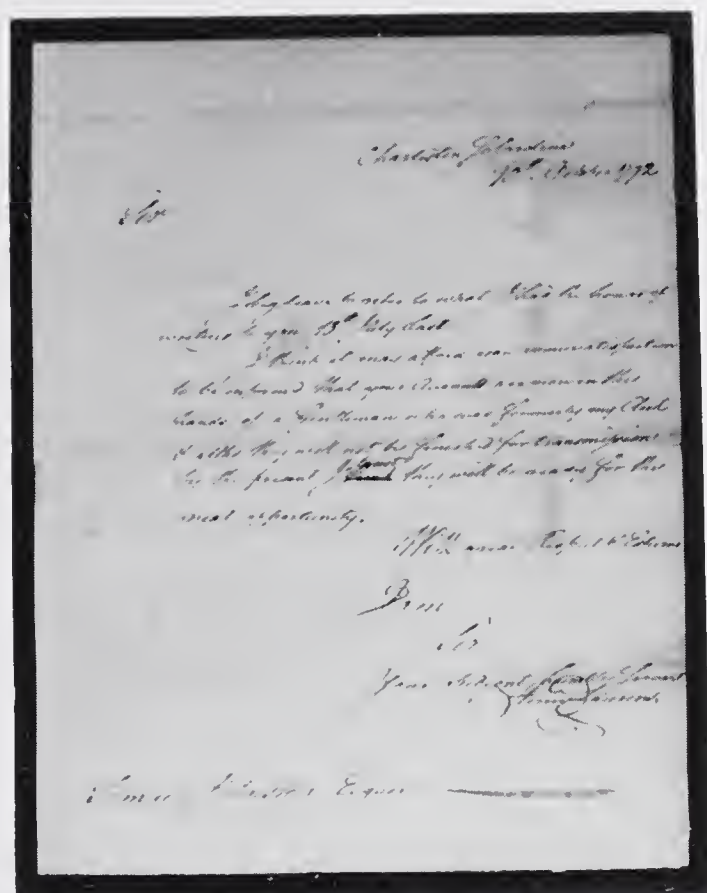 Charleston So Carolina
October 1792
Sir
I beg leave to refer to what I had the honour of
writing to you 13th July last
I think it may afford you some satisfaction
to be informed that your Accounts are now in the
hands of a Gentleman who was formerly my Clerk
& altho they will not be finished for transmission
by the present they will be ready for the
next opportunity.
With great Respect & Esteem
I am
Sir
Your Obedient humble Servant
Esquire